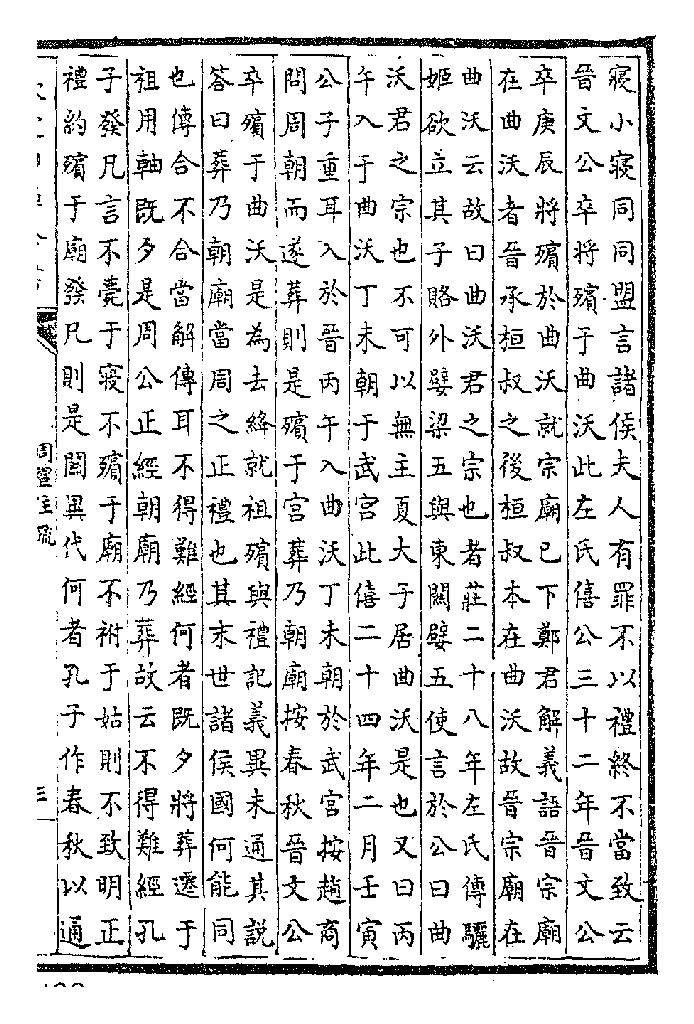 寢小寢同同盟言諸侯夫人有罪不以禮終不當致云
晉文公卒將殯于曲沃此左氏僖公三十二年晉文公
卒庚辰將殯於曲沃就宗廟已下鄭君解義語晉宗廟
在曲沃者晉承桓叔之後桓叔本在曲沃故晉宗廟在
曲沃云故曰曲沃君之宗也者莊二十八年左氏傳驪
姬欲立其子賂外嬖梁五與東關嬖五使言於公曰曲
沃君之宗也不可以無主夏大子居曲沃是也又曰丙
午入于曲沃丁未朝于武宮此僖二十四年二月壬寅
公子重耳入於晉丙午入曲沃丁未朝於武宮按趙商
問周朝而遂葬則是殯于宮葬乃朝廟按春秋晉文公
卒殯于曲沃是為去絳就祖殯與禮記義異未通其説
答曰葬乃朝廟當周之正禮也其末世諸侯國何能同
也傳合不合當解傳耳不得難經何者既夕將葬遷于
祖用軸既夕是周公正經朝廟乃葬故云不得難經孔
子發凡言不薨于寢不殯于廟不祔于姑則不致明正
禮約殯于廟發凡則是關異代何者孔子作春秋以通
周禮注疏